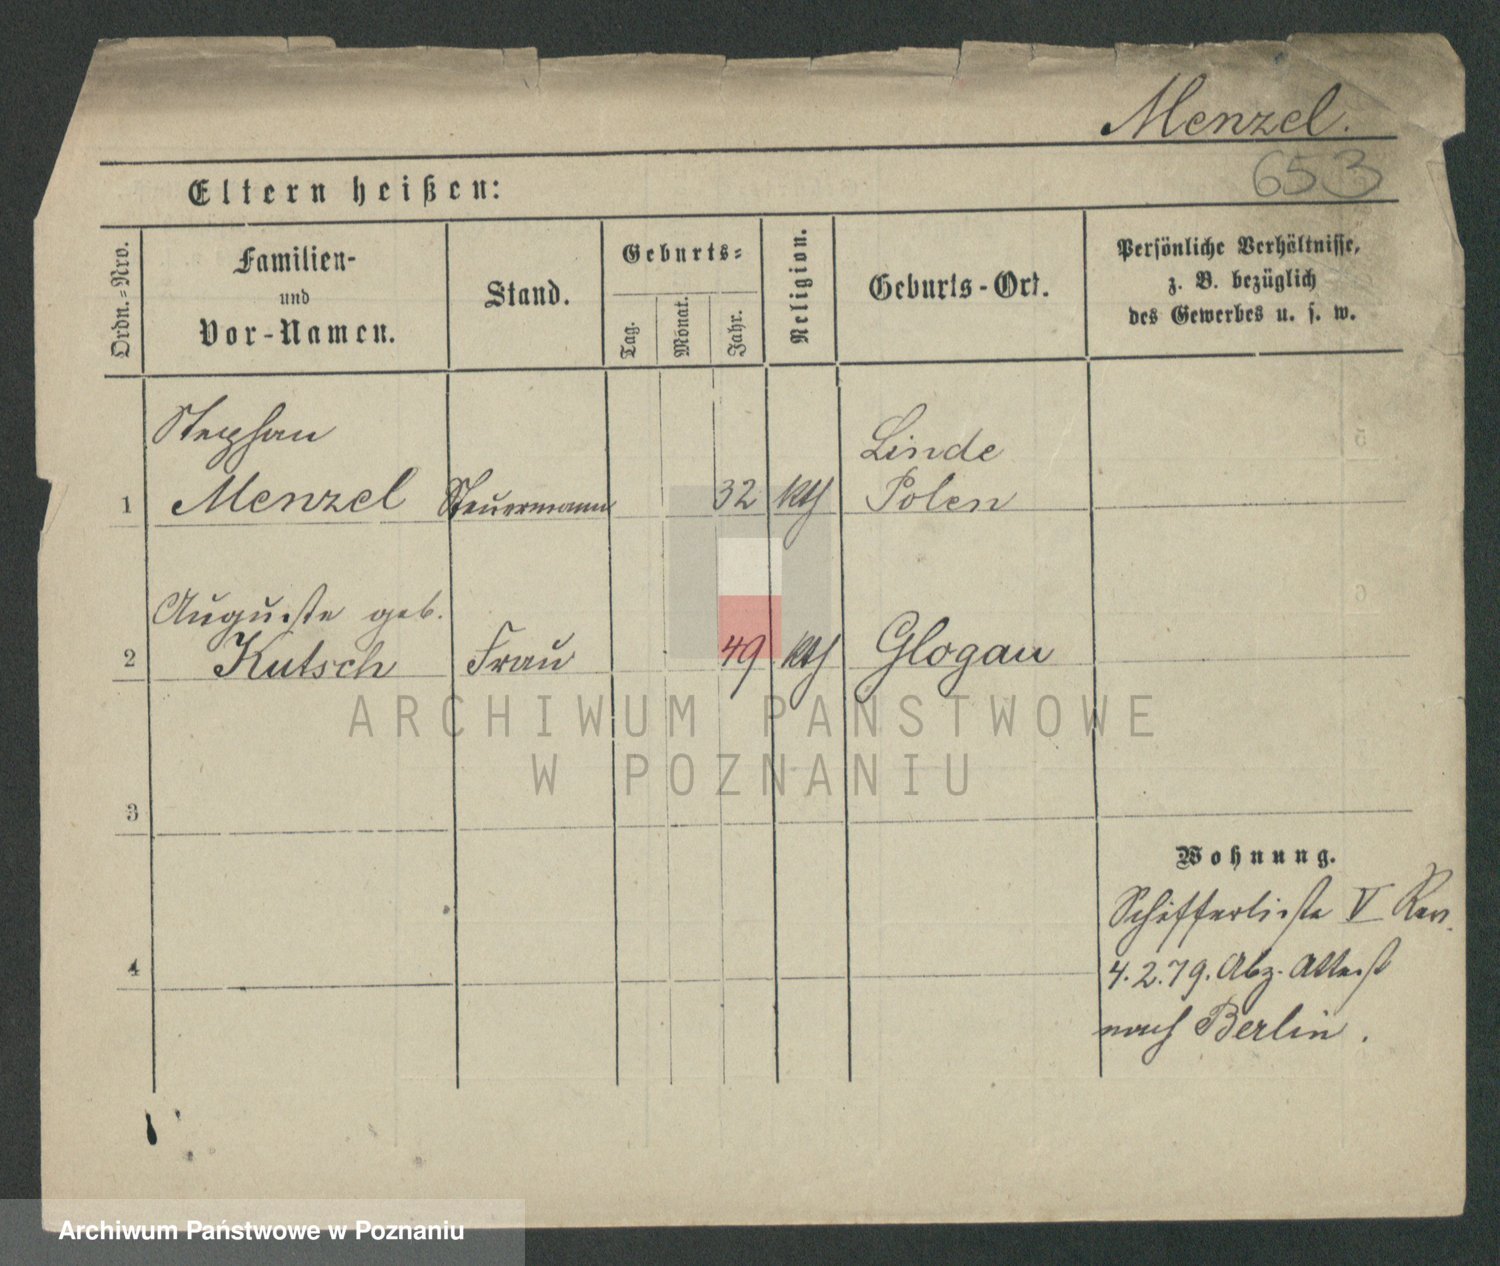 Menzel.
653
Eltern heißen:
Ordn.=Nro.
Familien-
und
Vor-Namen.
Stand.
Geburts=
Tag.
Monat.
Jahr.
Religion.
Geburts-Ort.
Persönliche Verhältnisse,
z. B. bezüglich
des Gewerbes u. s. w.
Stephan
Linde
1 Menzel Steuermann 32 kth Polen
Auguste geb.
2 Kutsch Frau 49 kth Glogau
ARCHIWUM PAŃSTWOWE
W POZNANIU
3
Wohnung.
Schifferliste V Rev.
4 4.2.79. Abz. Attest
nach Berlin.
Archiwum Państwowe w Poznaniu